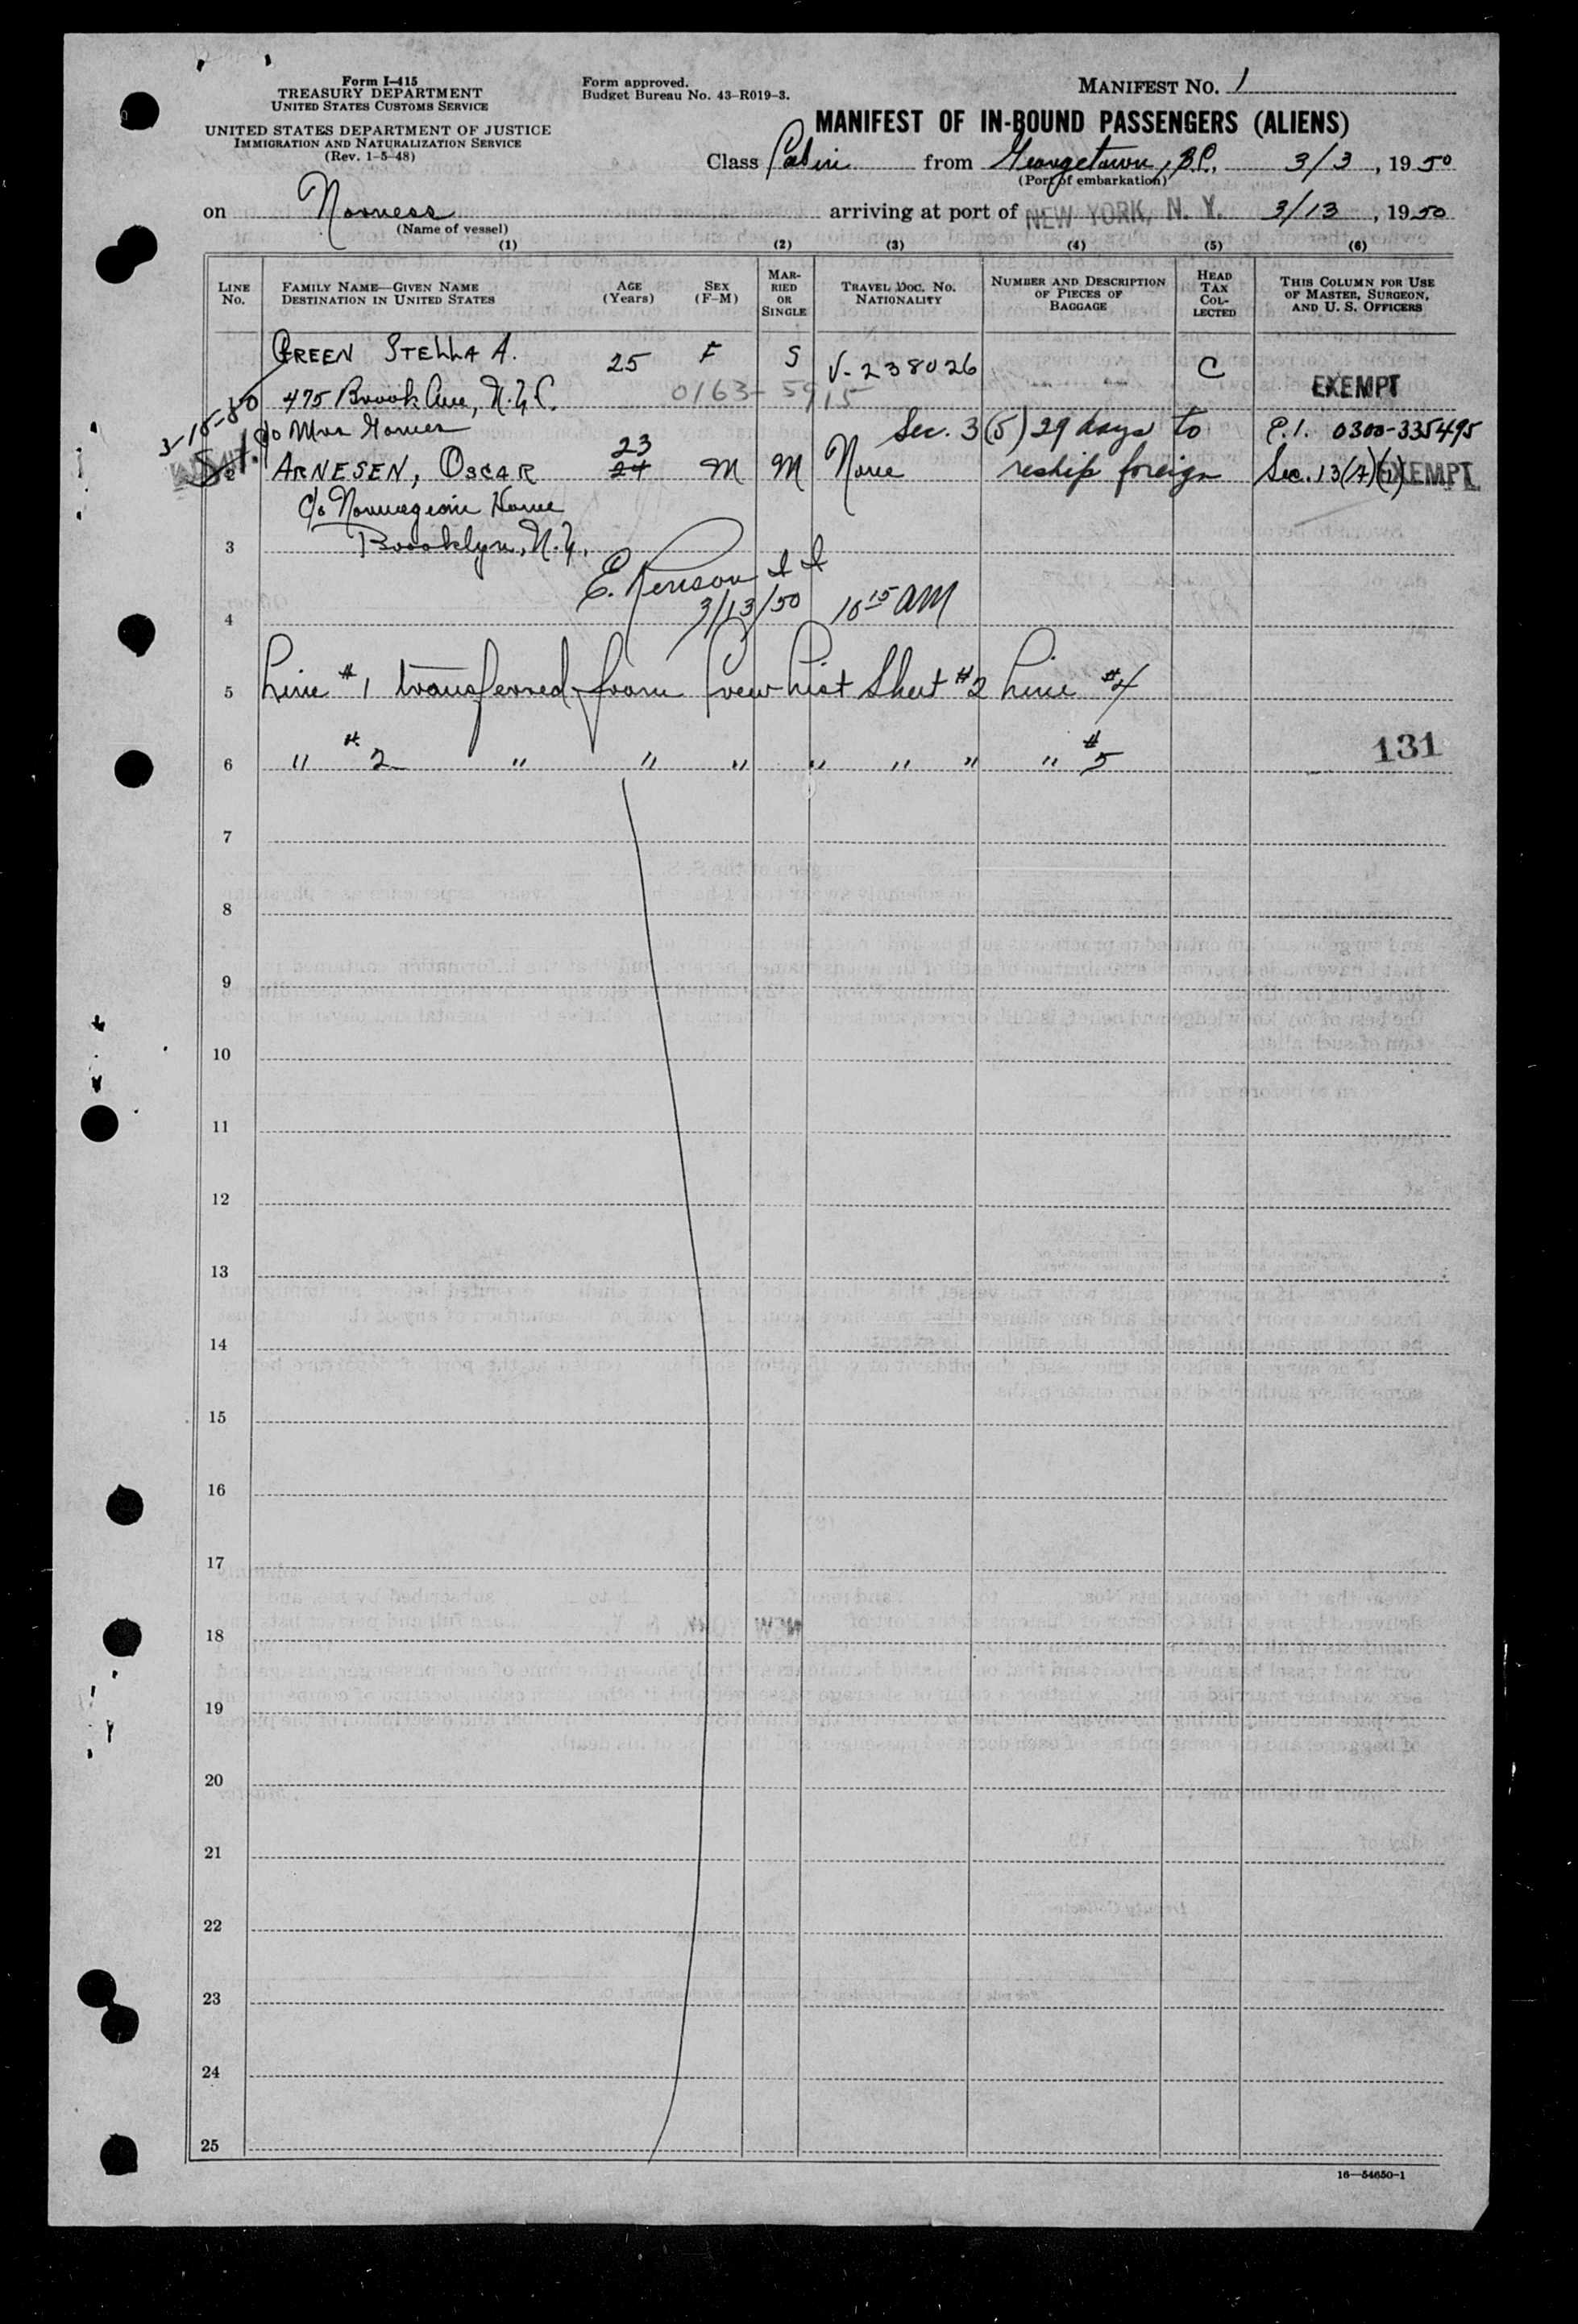 Form I-415
TREASURY DEPARTMENT
UNITED STATES CUSTOMS SERVICE
UNITED STATES DEPARTMENT OF JUSTICE
IMMIGRATION AND NATURALIZATION SERVICE
(Rev. 1-5-48)
Form approved.
Budget Bureau No. 43-R019-3.
MANIFEST NO. 1
MANIFEST OF IN-BOUND PASSENGERS (ALIENS)
Class Cabin from Georgetown, 3/3, 1950
(Port of embarkation)
on Norness arriving at port of NEW YORK, N. Y. 3/13, 1950
(Name of vessel)
(1) (2) (3) (4) (5) (6)
LINE NO. FAMILY NAME—GIVEN NAME DESTINATION IN UNITED STATES AGE (Years) SEX (F-M) MARRIED OR SINGLE TRAVEL DOC. NO. NATIONALITY NUMBER AND DESCRIPTION OF PIECES OF BAGGAGE HEAD TAX COLLECTED THIS COLUMN FOR USE OF MASTER, SURGEON, AND U. S. OFFICERS
GREEN STELLA A. 25 F S V-238026 C EXEMPT
475 Brook Ave, N.Y.C. 0163-5915
c/o Mrs Sec. 3(5) 29 days to P.I. 0300-335495
3-15-50
2 ARNESEN, OSCAR 23 24 M M None reship foreign Sec. 13(A)(1) EXEMPT
c/o Norwegian Home
3 Brooklyn, N.Y.
E. Kenison I I
4 3/13/50 10 15 AM
5 Line #1 transferred from Crew List Sheet #2 Line #4
6 " #2 " " " " " " " #5
131
7
8
9
10
11
12
13
14
15
16
17
18
19
20
21
22
23
24
25
16—54650-1